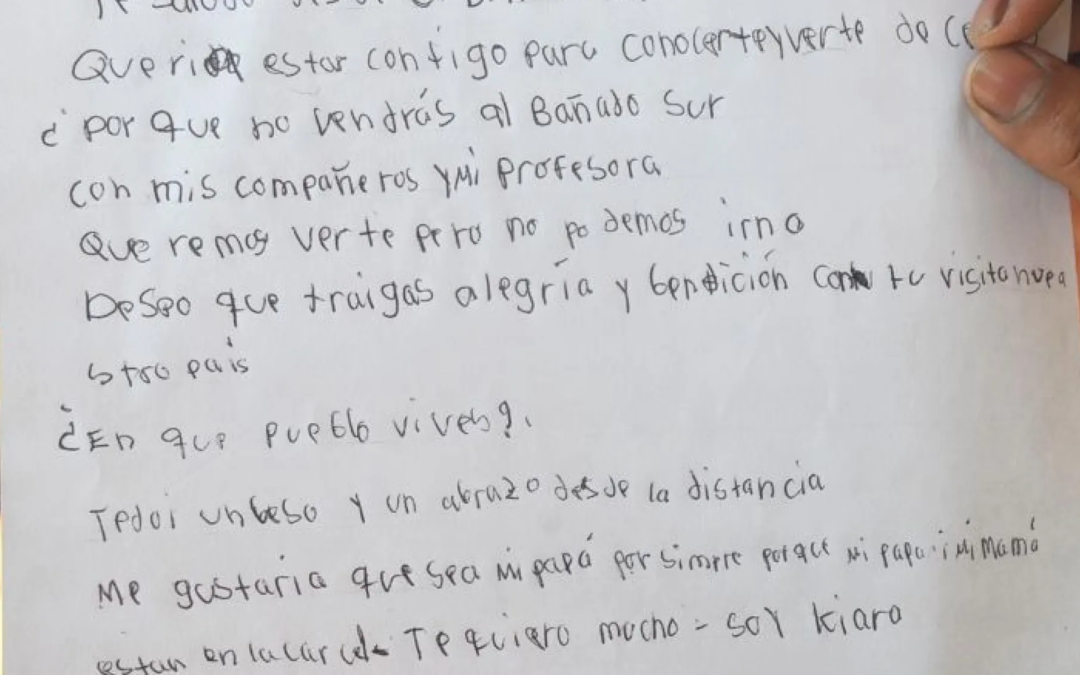 Te saludo
Queria estar contigo para conocerteyverte de ce
¿ por que no vendrás al Bañado Sur
con mis compañeros y Mi profesora
Queremos verte pero no podemos irno
Deseo que traigas alegría y bendición con tu visitanuea
stro pais
¿En que pueblo vives?.
Tedoi unbeso y un abrazo desde la distancia
Me gustaria que sea Mi papá por simpre porque Mi papa i Mi Mamá
estan en lacarcel- Te quiero mucho - soy kiara